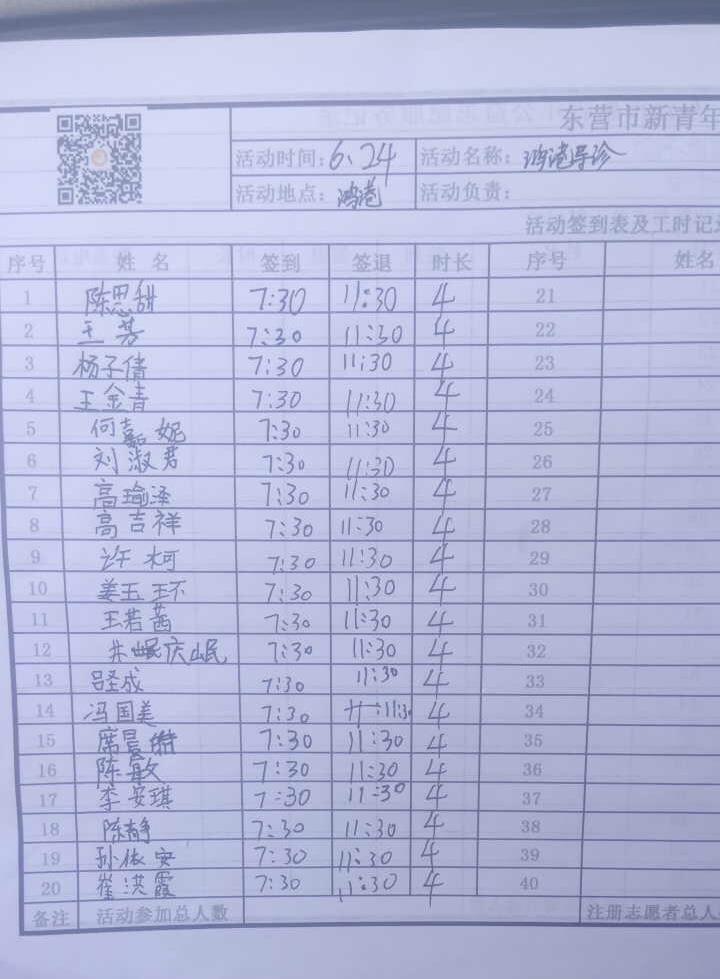 东营市新青年
活动时间: 6.24 活动名称: 鸿港导诊
活动地点: 鸿港 活动负责:
活动签到表及工时记
序号 姓名 签到 签退 时长 序号 姓名
1 陈思甜 7:30 11:30 4 21
2 王芳 7:30 11:30 4 22
3 杨子倩 7:30 11:30 4 23
4 王金青 7:30 11:30 4 24
5 何嘉妮 7:30 11:30 4 25
6 刘淑君 7:30 11:30 4 26
7 高瑜泽 7:30 11:30 4 27
8 高吉祥 7:30 11:30 4 28
9 许柯 7:30 11:30 4 29
10 姜玉环 7:30 11:30 4 30
11 王若茜 7:30 11:30 4 31
12 朱庆岷 7:30 11:30 4 32
13 吕圣成 7:30 11:30 4 33
14 冯国美 7:30 11:30 4 34
15 席晨 7:30 11:30 4 35
16 陈敏 7:30 11:30 4 36
17 李安琪 7:30 11:30 4 37
18 陈静 7:30 11:30 4 38
19 孙依安 7:30 11:30 4 39
20 崔洪霞 7:30 11:30 4 40
备注 活动参加总人数 注册志愿者总人